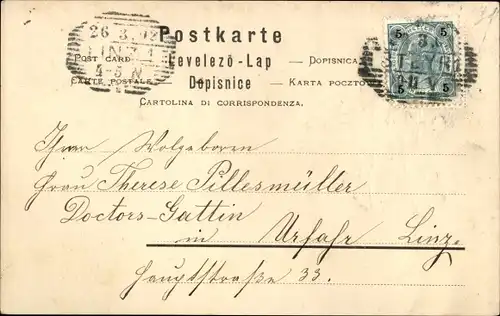 26.3.02
LINZ 1
4-5 N
Postkarte
Post card — Levelezö-Lap — Dopisnica
Carte postale — Dopisnice — Karta poczto
Cartolina di corrispondenza.
5 5
STEYR
5 5
Ihrer Wolgeboren
Frau Therese Pillesmüller
Doctors-Gattin
in Urfahr Linz.
Hauptstraße 33.